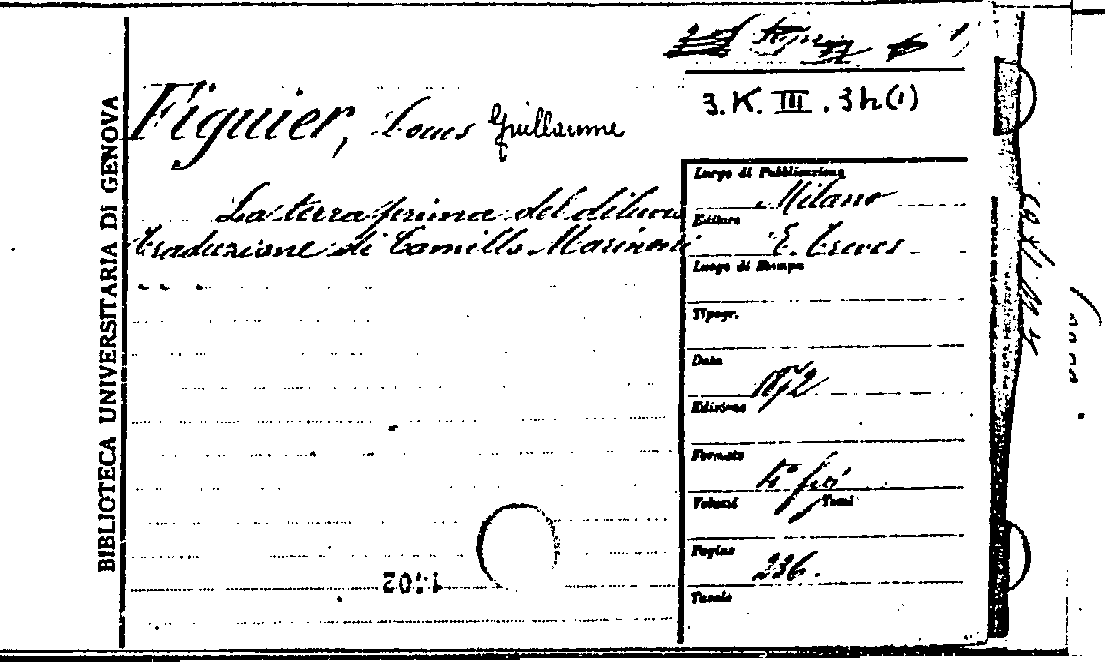 BIBLIOTECA UNIVERSITARIA DI GENOVA
3.K.III.3h(1)
Figuier, Louis Guillaume
La terra prima del diluvio
traduzione di Camillo Marinoni
Luogo di Pubblicazione
Milano
Editore
E. Treves
Luogo di Stampa
Tipogr.
Data
1872
Edizione
Formato
4° fig
Volumi Tomi
Pagine
236.
Tavole